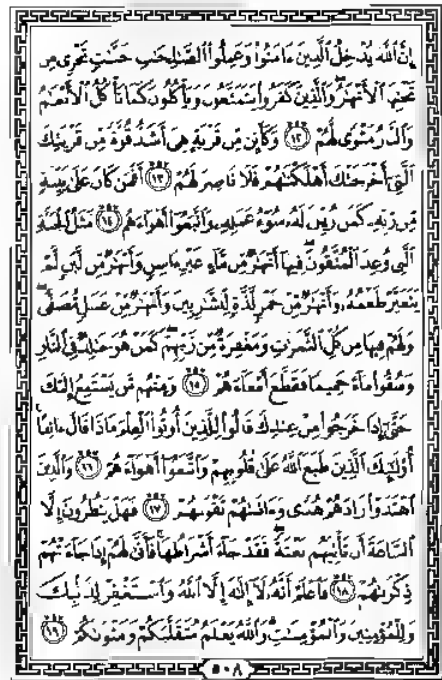 إِنَّ ٱللَّهَ يُدْخِلُ ٱلَّذِينَ ءَامَنُوا۟ وَعَمِلُوا۟ ٱلصَّٰلِحَٰتِ جَنَّٰتٍ تَجْرِى مِن
تَحْتِهَا ٱلْأَنْهَٰرُ ۖ وَٱلَّذِينَ كَفَرُوا۟ يَتَمَتَّعُونَ وَيَأْكُلُونَ كَمَا تَأْكُلُ ٱلْأَنْعَٰمُ
وَٱلنَّارُ مَثْوًى لَّهُمْ ﴿١٢﴾ وَكَأَيِّن مِّن قَرْيَةٍ هِىَ أَشَدُّ قُوَّةً مِّن قَرْيَتِكَ
ٱلَّتِىٓ أَخْرَجَتْكَ أَهْلَكْنَٰهُمْ فَلَا نَاصِرَ لَهُمْ ﴿١٣﴾ أَفَمَن كَانَ عَلَىٰ بَيِّنَةٍ
مِّن رَّبِّهِۦ كَمَن زُيِّنَ لَهُۥ سُوٓءُ عَمَلِهِۦ وَٱتَّبَعُوٓا۟ أَهْوَآءَهُم ﴿١٤﴾ مَّثَلُ ٱلْجَنَّةِ
ٱلَّتِى وُعِدَ ٱلْمُتَّقُونَ ۖ فِيهَآ أَنْهَٰرٌ مِّن مَّآءٍ غَيْرِ ءَاسِنٍ وَأَنْهَٰرٌ مِّن لَّبَنٍ لَّمْ
يَتَغَيَّرْ طَعْمُهُۥ وَأَنْهَٰرٌ مِّنْ خَمْرٍ لَّذَّةٍ لِّلشَّٰرِبِينَ وَأَنْهَٰرٌ مِّنْ عَسَلٍ مُّصَفًّى ۖ
وَلَهُمْ فِيهَا مِن كُلِّ ٱلثَّمَرَٰتِ وَمَغْفِرَةٌ مِّن رَّبِّهِمْ ۖ كَمَنْ هُوَ خَٰلِدٌ فِى ٱلنَّارِ
وَسُقُوا۟ مَآءً حَمِيمًا فَقَطَّعَ أَمْعَآءَهُمْ ﴿١٥﴾ وَمِنْهُم مَّن يَسْتَمِعُ إِلَيْكَ
حَتَّىٰٓ إِذَا خَرَجُوا۟ مِنْ عِندِكَ قَالُوا۟ لِلَّذِينَ أُوتُوا۟ ٱلْعِلْمَ مَاذَا قَالَ ءَانِفًا ۚ
أُو۟لَٰٓئِكَ ٱلَّذِينَ طَبَعَ ٱللَّهُ عَلَىٰ قُلُوبِهِمْ وَٱتَّبَعُوٓا۟ أَهْوَآءَهُمْ ﴿١٦﴾ وَٱلَّذِينَ
ٱهْتَدَوْا۟ زَادَهُمْ هُدًى وَءَاتَىٰهُمْ تَقْوَىٰهُمْ ﴿١٧﴾ فَهَلْ يَنظُرُونَ إِلَّا
ٱلسَّاعَةَ أَن تَأْتِيَهُم بَغْتَةً ۖ فَقَدْ جَآءَ أَشْرَاطُهَا ۚ فَأَنَّىٰ لَهُمْ إِذَا جَآءَتْهُمْ
ذِكْرَىٰهُمْ ﴿١٨﴾ فَٱعْلَمْ أَنَّهُۥ لَآ إِلَٰهَ إِلَّا ٱللَّهُ وَٱسْتَغْفِرْ لِذَنۢبِكَ
وَلِلْمُؤْمِنِينَ وَٱلْمُؤْمِنَٰتِ ۗ وَٱللَّهُ يَعْلَمُ مُتَقَلَّبَكُمْ وَمَثْوَىٰكُمْ ﴿١٩﴾
٥٠٨